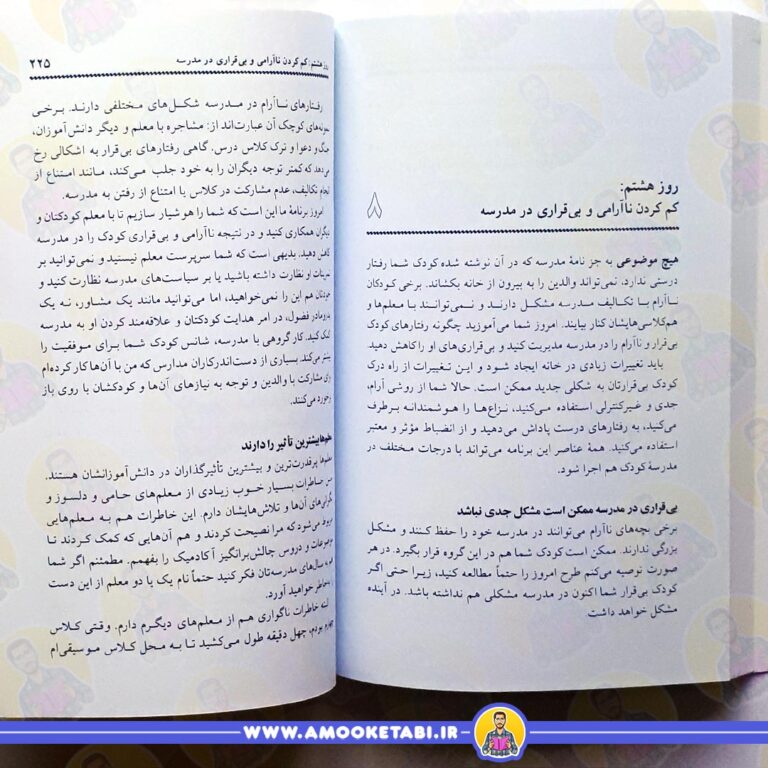 روز هشتم:
کم کردن ناآرامی و بی‌قراری در مدرسه
۸
هیچ موضوعی به جز نامهٔ مدرسه که در آن نوشته شده کودک شما رفتار
درستی ندارد. نمی‌تواند والدین را به بیرون از خانه بکشاند. برخی کودکان
ناآرام با تکالیف مدرسه مشکل دارند و نمی‌توانند با معلم‌ها و
هم‌کلاسی‌هایشان کنار بیایند. امروز شما می‌آموزید چگونه رفتارهای کودک
بی‌قرار و ناآرام را در مدرسه مدیریت کنید و بی‌قراری‌های او را کاهش دهید.
باید تغییرات زیادی در خانه ایجاد شود و این تغییرات از راه درک
کودک بی‌قرارتان به شکلی جدید ممکن است. حالا شما از روشی آرام،
جدی و غیرکنترلی استفاده می‌کنید، نزاع‌ها را هوشمندانه برطرف
می‌کنید، به رفتارهای درست پاداش می‌دهید و از انضباط مؤثر و معتبر
استفاده می‌کنید. همهٔ عناصر این برنامه می‌تواند با درجات مختلف در
مدرسهٔ کودک هم اجرا شود.
بی‌قراری در مدرسه ممکن است مشکل جدی نباشد
برخی بچه‌های ناآرام می‌توانند در مدرسه خود را حفظ کنند و مشکل
بزرگی ندارند. ممکن است کودک شما هم در این گروه قرار بگیرد. در هر
صورت توصیه می‌کنم طرح امروز را حتماً مطالعه کنید، زیرا حتی اگر
کودک بی‌قرار شما اکنون در مدرسه مشکلی هم نداشته باشد. در آینده
مشکل خواهد داشت
روز هشتم: کم کردن ناآرامی و بی‌قراری در مدرسه ۲۲۵
رفتارهای ناآرام در مدرسه شکل‌های مختلفی دارند. برخی
نمونه‌های کوچک آن عبارت‌اند از: مشاجره با معلم و دیگر دانش‌آموزان،
جنگ و دعوا و ترک کلاس درس. گاهی رفتارهای بی‌قرار به اشکالی رخ
می‌دهد که کمتر توجه دیگران را به خود جلب می‌کند، مانند امتناع از
انجام تکالیف، عدم مشارکت در کلاس یا امتناع از رفتن به مدرسه.
امروز برنامهٔ ما این است که شما را هوشیار سازیم تا با معلم کودکتان و
دیگران همکاری کنید و در نتیجه ناآرامی و بی‌قراری کودک را در مدرسه
کاهش دهید. بدیهی است که شما سرپرست معلم نیستید و نمی‌توانید بر
تمرینات او نظارت داشته باشید یا بر سیاست‌های مدرسه نظارت کنید و
خودتان هم این را نمی‌خواهید، اما می‌توانید مانند یک مشاور، نه یک
پدرومادر فضول، در امر هدایت کودکتان و علاقه‌مند کردن او به مدرسه
کمک کنید. کار گروهی با مدرسه، شانس کودک شما برای موفقیت را
بیشتر می‌کند. بسیاری از دست‌اندرکاران مدارس که من با آن‌ها کار کرده‌ام
برای مشارکت با والدین و توجه به نیازهای آن‌ها و کودکشان با روی باز
برخورد می‌کنند.
معلم‌ها بیشترین تأثیر را دارند
معلم‌ها پرقدرت‌ترین و بیشترین تأثیرگذاران در دانش‌آموزانشان هستند.
من خاطرات بسیار خوب زیادی از معلم‌های حامی و دلسوز و
نگرانی‌های آن‌ها و تلاش‌هایشان دارم. این خاطرات هم به معلم‌هایی
مربوط می‌شود که مرا نصیحت کردند و هم آن‌هایی که کمک کردند تا
موضوعات و دروس چالش‌برانگیز آکادمیک را بفهمم. مطمئنم اگر شما
هم به سال‌های مدرسه‌تان فکر کنید حتماً نام یک یا دو معلم از این دست
را به‌خاطر خواهید آورد.
البته خاطرات ناگواری هم از معلم‌های دیگرم دارم. وقتی کلاس
چهارم بودم، چهل دقیقه طول می‌کشید تا به محل کلاس موسیقی‌ام
WWW.AMOOKETABI.IR